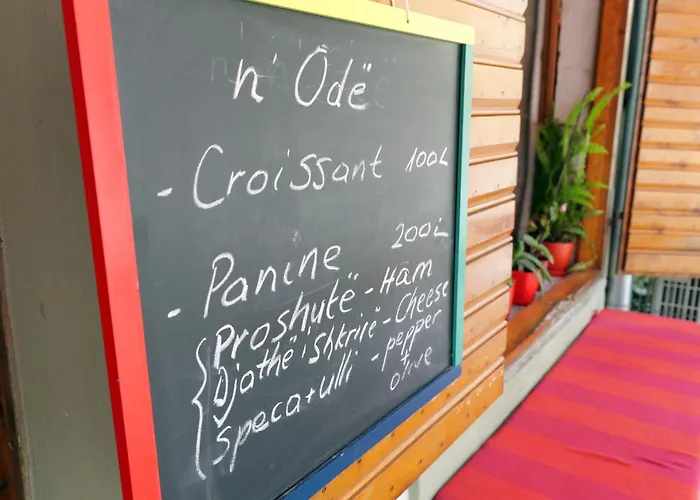 n' Odë
- Croissant 100L
- Panine 200L
Proshutë - Ham
Djathë i Shkrirë - Cheese
Speca + ulli - pepper
+ olive